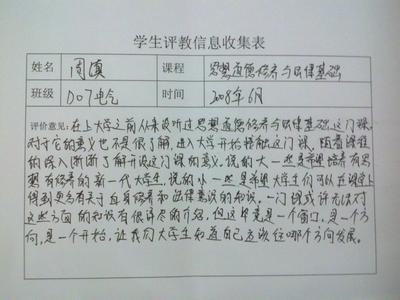 学生评教信息收集表
姓名 周 课程 思想道德修养与法律基础
班级 D07电气 时间 2008年6月
评价意见:在上大学之前从未听过思想道德修养与法律基础这门课,
对于它的意义也不是很了解,进入大学开始接触这门课,随着课程
的深入渐渐了解开设这门课的意义,说的大一些是希望培养有思
想有修养的新一代大学生,说的小一些是希望大学生们可以在课堂上
得到更多有关于自身修养和法律意识的知识。一门课或许无法对
这些方面的知识有很详尽的介绍,但这毕竟是一个窗口,是一个方
向,是一个开始,让我们大学生知道自己应该往哪个方向发展。